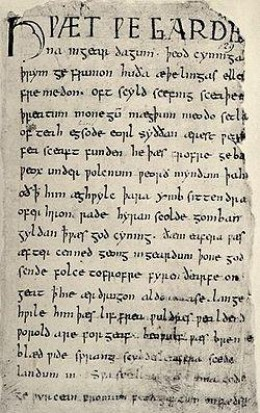 HǷÆT ǷE GARDE
na ingear dagum. þeod cyninga
þrym ge frunon huða æþelingas elle
fre medon. oft scyld scefing sceaþe
þreatum monegū mægþum meodo setla
of teah egsode eorl syððan ærest ƿea
fea sceaft funden he þæs frofre geba
ƿeox under ƿolcnum ƿeorð myndum þah
oð ꝥ him æghƿylc þara ymb sittendra
ofer hron rade hyran scolde gomban
gyldan ꝥ ƿæs god cyning. ðæm eafera ƿæs
æfter cenned geong ingeardum þone god
sende folce tofrofre fyren ðearfe on
geat ꝥ hie ær drugon aldor ase. lange
hƿile him þæs lif frea ƿuldres ƿealdend
ƿorold are for geaf. beoƿulf ƿæs breme
blæd ƿide sprang scyldes eafera scede
landum in. Sƿa sceal uma gode
ge ƿyrcean fromum feoh giftum on fæder